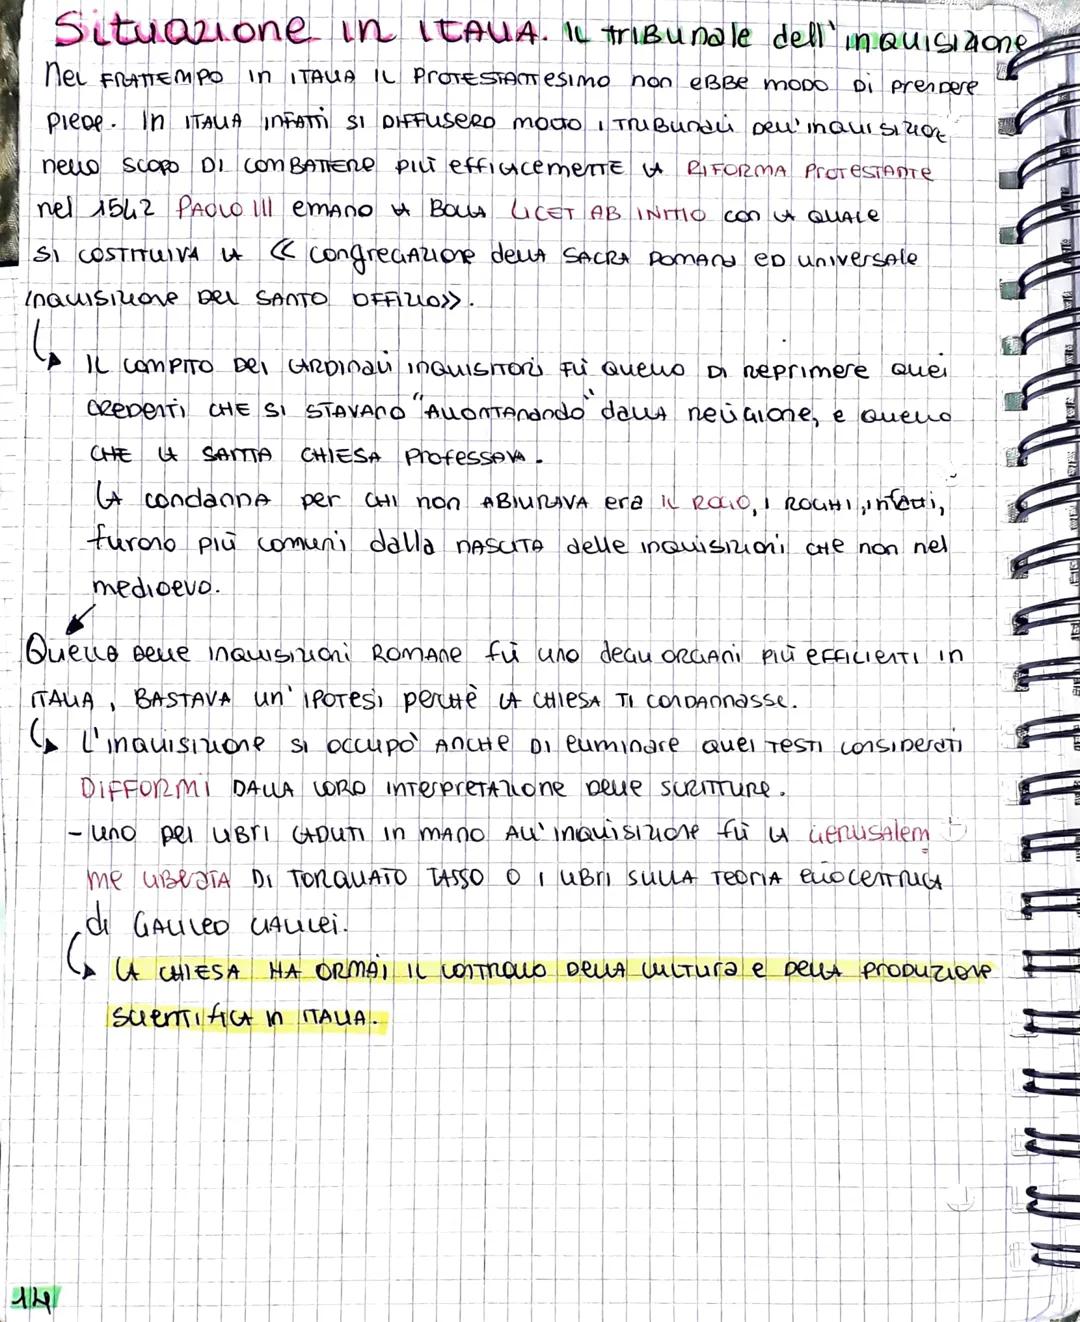 Situazione in ITALIA. IL TRIBUNALE dell'inquisizione
Nel FRATTEMPO in ITALIA IL PROTESTANTesimo non eBBe modo Di prendere
piede. In ITALIA INFATTI SI DIFFUSERO molto i TRIBUNALI Dell'inquisizione
nello SCOPO DI COMBATTERE più efficacemente LA RIFORMA PROTESTANTE
nel 1542 PAOLO III emanò LA BOLLA LICET AB INITIO con LA QUALE
SI COSTITUIVA LA << congregAzione della SACRA ROMANA ED universale
Inquisizione Del SANTO OFFIZIO>>.
IL COMPITO Dei CARDINALI inquisitori fù quello DI reprimere quei
CREDENTI CHE SI STAVANO "ALLONTANANDO" dalla religione, e quello
CHE LA SANTA CHIESA Professava.
LA condanna per CHI non ABIURAVA era il ROGO, I ROGHI, infatti,
furono più comuni dalla NASCITA delle inquisizioni che non nel
medioevo.
Quello Delle inquisizioni ROMANE fù uno degli ORGANI più EFFICIENTI in
ITALIA, BASTAVA un' IPOTESI perchè LA CHIESA TI CONDANNASSE.
L'inquisizione si occupò ANCHE DI eliminare quei TESTI considerati
DIFFORMI DALLA LORO INTERPRETAZIONE Delle SCRITTURE.
- uno dei LIBRI CADUTI in mano ALL'inquisizione fù LA GERUSALEM
me LIBERATA DI TORQUATO TASSO O I LIBRI SULLA TEORIA ELIOCENTRICA
di GALILEO GALILEI.
LA CHIESA HA ORMAI IL CONTROLLO DELLA CULTURA e DELLA PRODUZIONE
SCIENTIFICA in ITALIA.
14